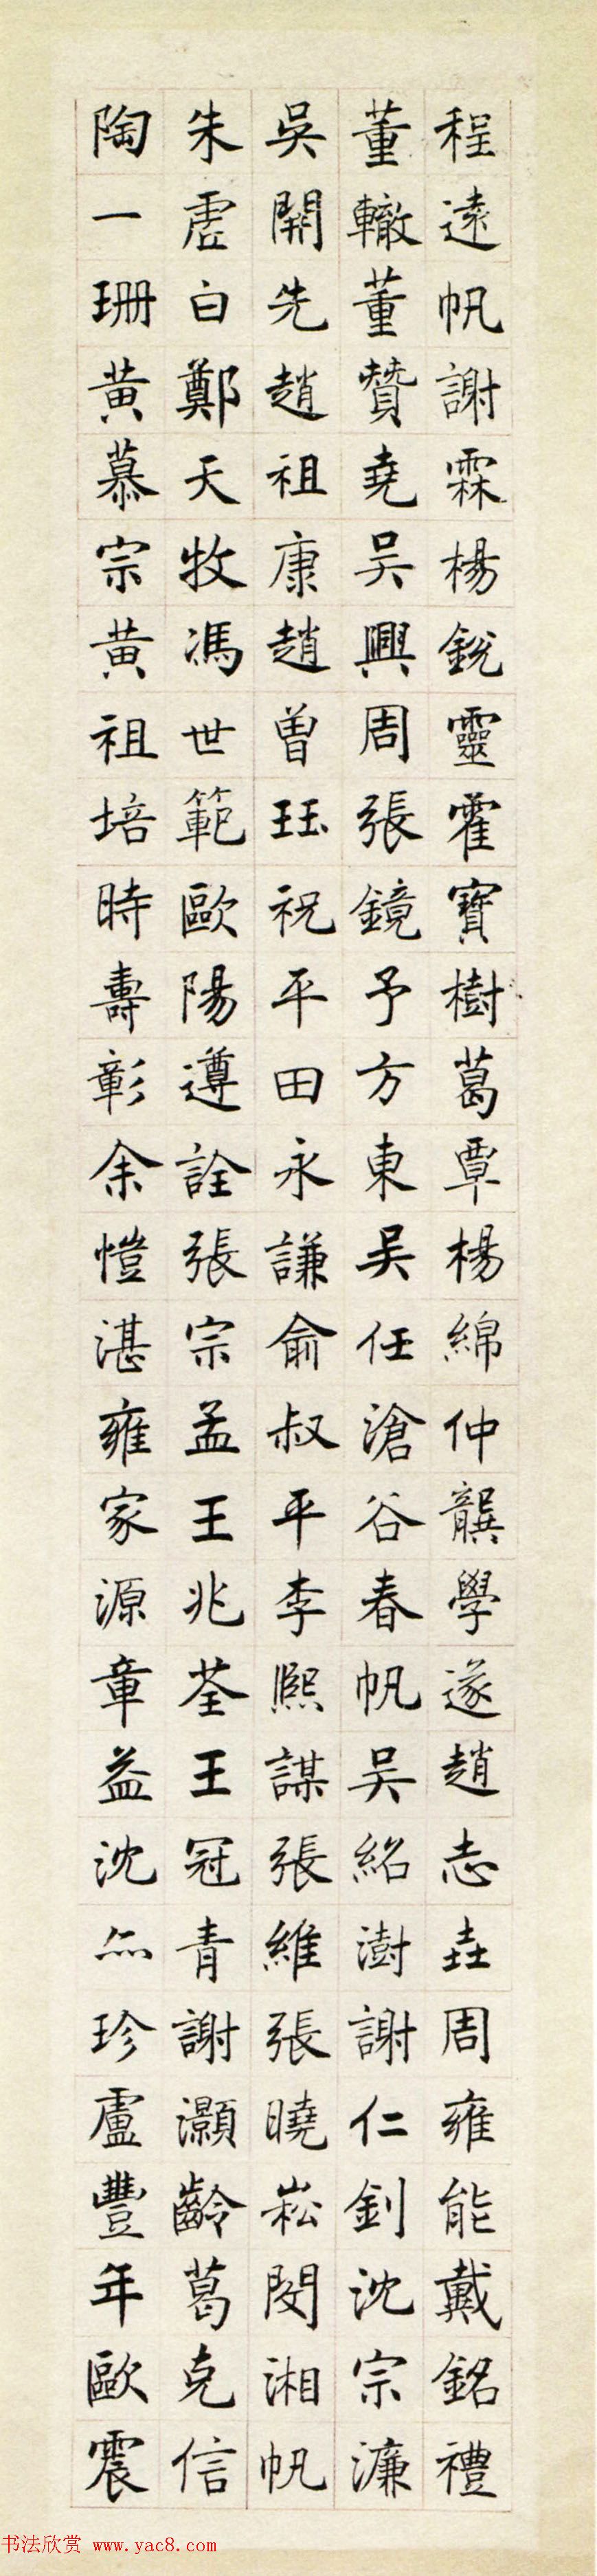 程遠帆謝霖楊銳靈霍寶樹葛覃楊綿仲龔學遂趙志垚周雍能戴銘禮
董轍董贊堯吴興周張鏡予方東吴任滄谷春帆吴紹澍謝仁釗沈宗濂
吳開先趙祖康趙曾珏祝平田永謙俞叔平李熙謀張維張曉崧閔湘帆
朱虛白鄭天牧馮世範歐陽遵詮張宗孟王兆荃王冠青謝灝齡葛克信
陶一珊黃慕宗黃祖培時壽彰余愷湛雍家源章益沈珍盧豐年歐震
书法欣赏 www.yac8.com